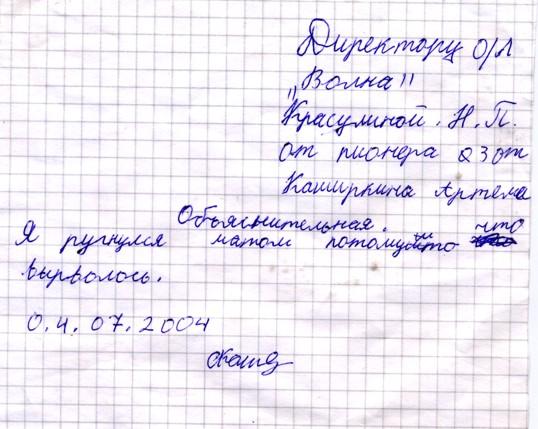 Директору О/Л
„Волна"
Красулиной. Н.П.
от пионера 23 от
Каширкина Артема
Объяснительная.
Я ругнулся матом потомушто что
вырволось.
0.4.07.2004